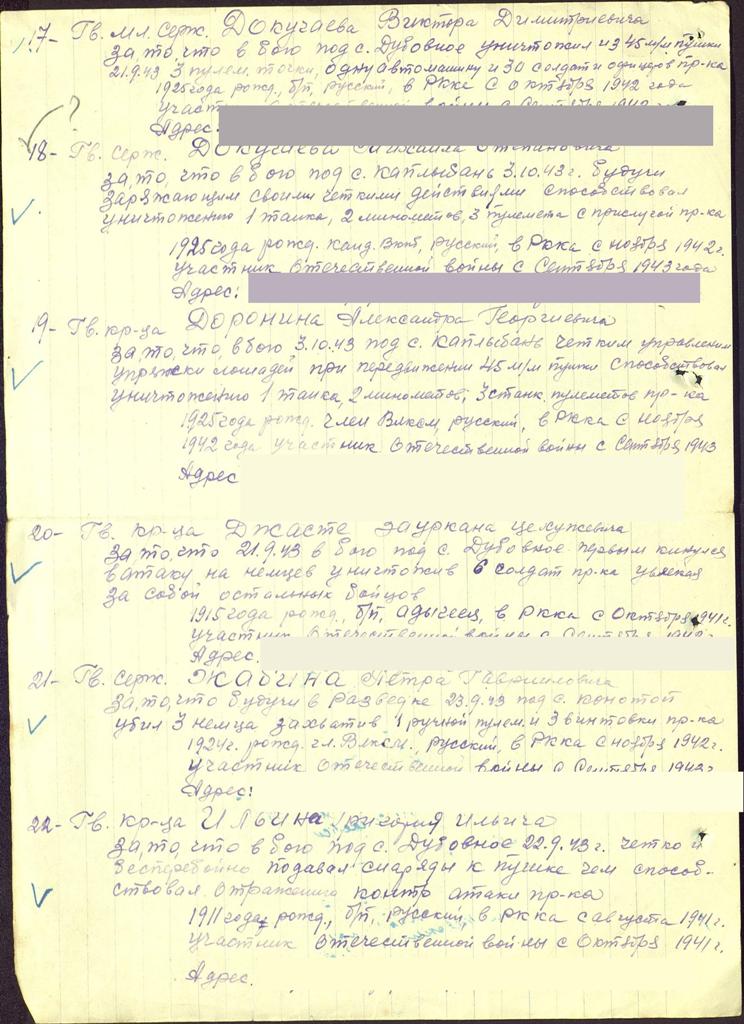 17- Гв. мл. серж. Докучаева Виктора Димитриевича
за то, что в бою под с. Дубовное уничтожил из 45 м/м пушки
21.9.43 3 пулем. точки, одну автомашину и 30 солдат и офицеров пр-ка
1925 года рожд., б/п, русский, в РККА с октября 1942 года
Адрес.
?
18- Гв. серж. Докучаева Михаила Степановича
за то, что в бою под с. Каплыбань 3.10.43 г. будучи
заряжающим своими четкими действиями способствовал
уничтожению 1 танка, 2 минометов, 3 пулемета с прислугой пр-ка
1925 года рожд. канд. ВКП/б, русский, в РККА с ноября 1942 г.
участник Отечественной войны с Сентября 1943 года
Адрес:
19- Гв. кр-ца Доронина Александра Георгиевича
за то, что, в бою 3.10.43 под с. Каплыбань четким управлением
упряжки лошадей при передвижении 45 м/м пушки способствовал
уничтожению 1 танка, 2 минометов, 3 станк. пулеметов пр-ка
1925 года рожд. член Влксм, русский, в РККА с ноября
1942 года участник Отечественной войны с Сентября 1943
Адрес
20- Гв. кр-ца Джасте Зауркана Целужевича
за то, что 21.9.43 в бою под с. Дубовное первым кинулся
в атаку на немцев уничтожив 6 солдат пр-ка увлекая
за собой остальных бойцов
1915 года рожд., б/п, адыгеец, в РККА с Октября 1941 г.
участник Отечественной войны с Сентября
Адрес.
21- Гв. серж. Жабина Петра Гавриловича
за то, что будучи в разведке 23.9.43 под с. Конотоп
убил 3 немца захватив 1 ручной пулем. и 3 винтовки пр-ка
1924 г. рожд. чл. Влксм., русский, в РККА с ноября 1942 г.
участник Отечественной войны с Сентября
Адрес:
22- Гв. кр-ца Ильина Григория Ильича
за то, что в бою под с. Дубовное 22.9.43 г. четко и
бесперебойно подавал снаряды к пушке чем способ-
ствовал отражению контр атаки пр-ка
1911 года рожд., б/п, русский, в РККА с августа 1941 г.
участник Отечественной войны с Октября 1941 г.
Адрес.